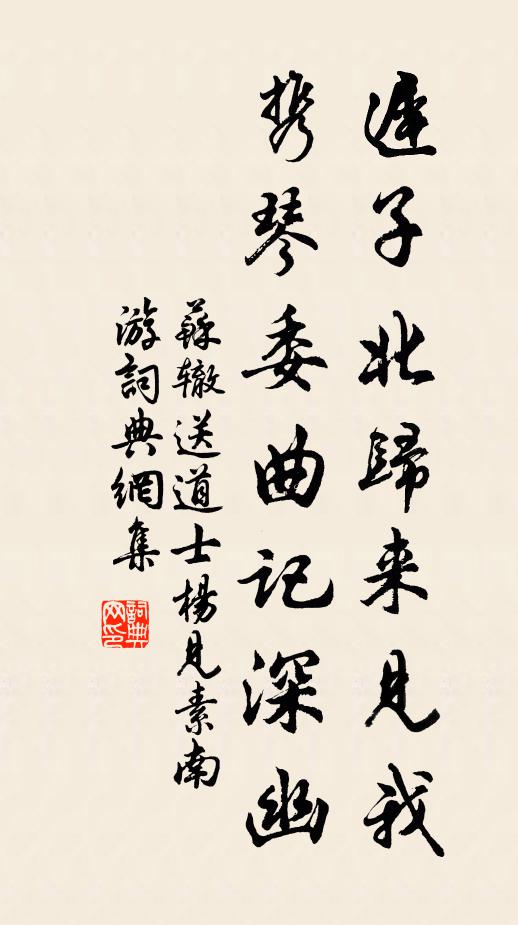 遲子北歸来見我
携琴委曲记深幽
蘇辙送道士楊見素南
游詞典網集
詞典网印